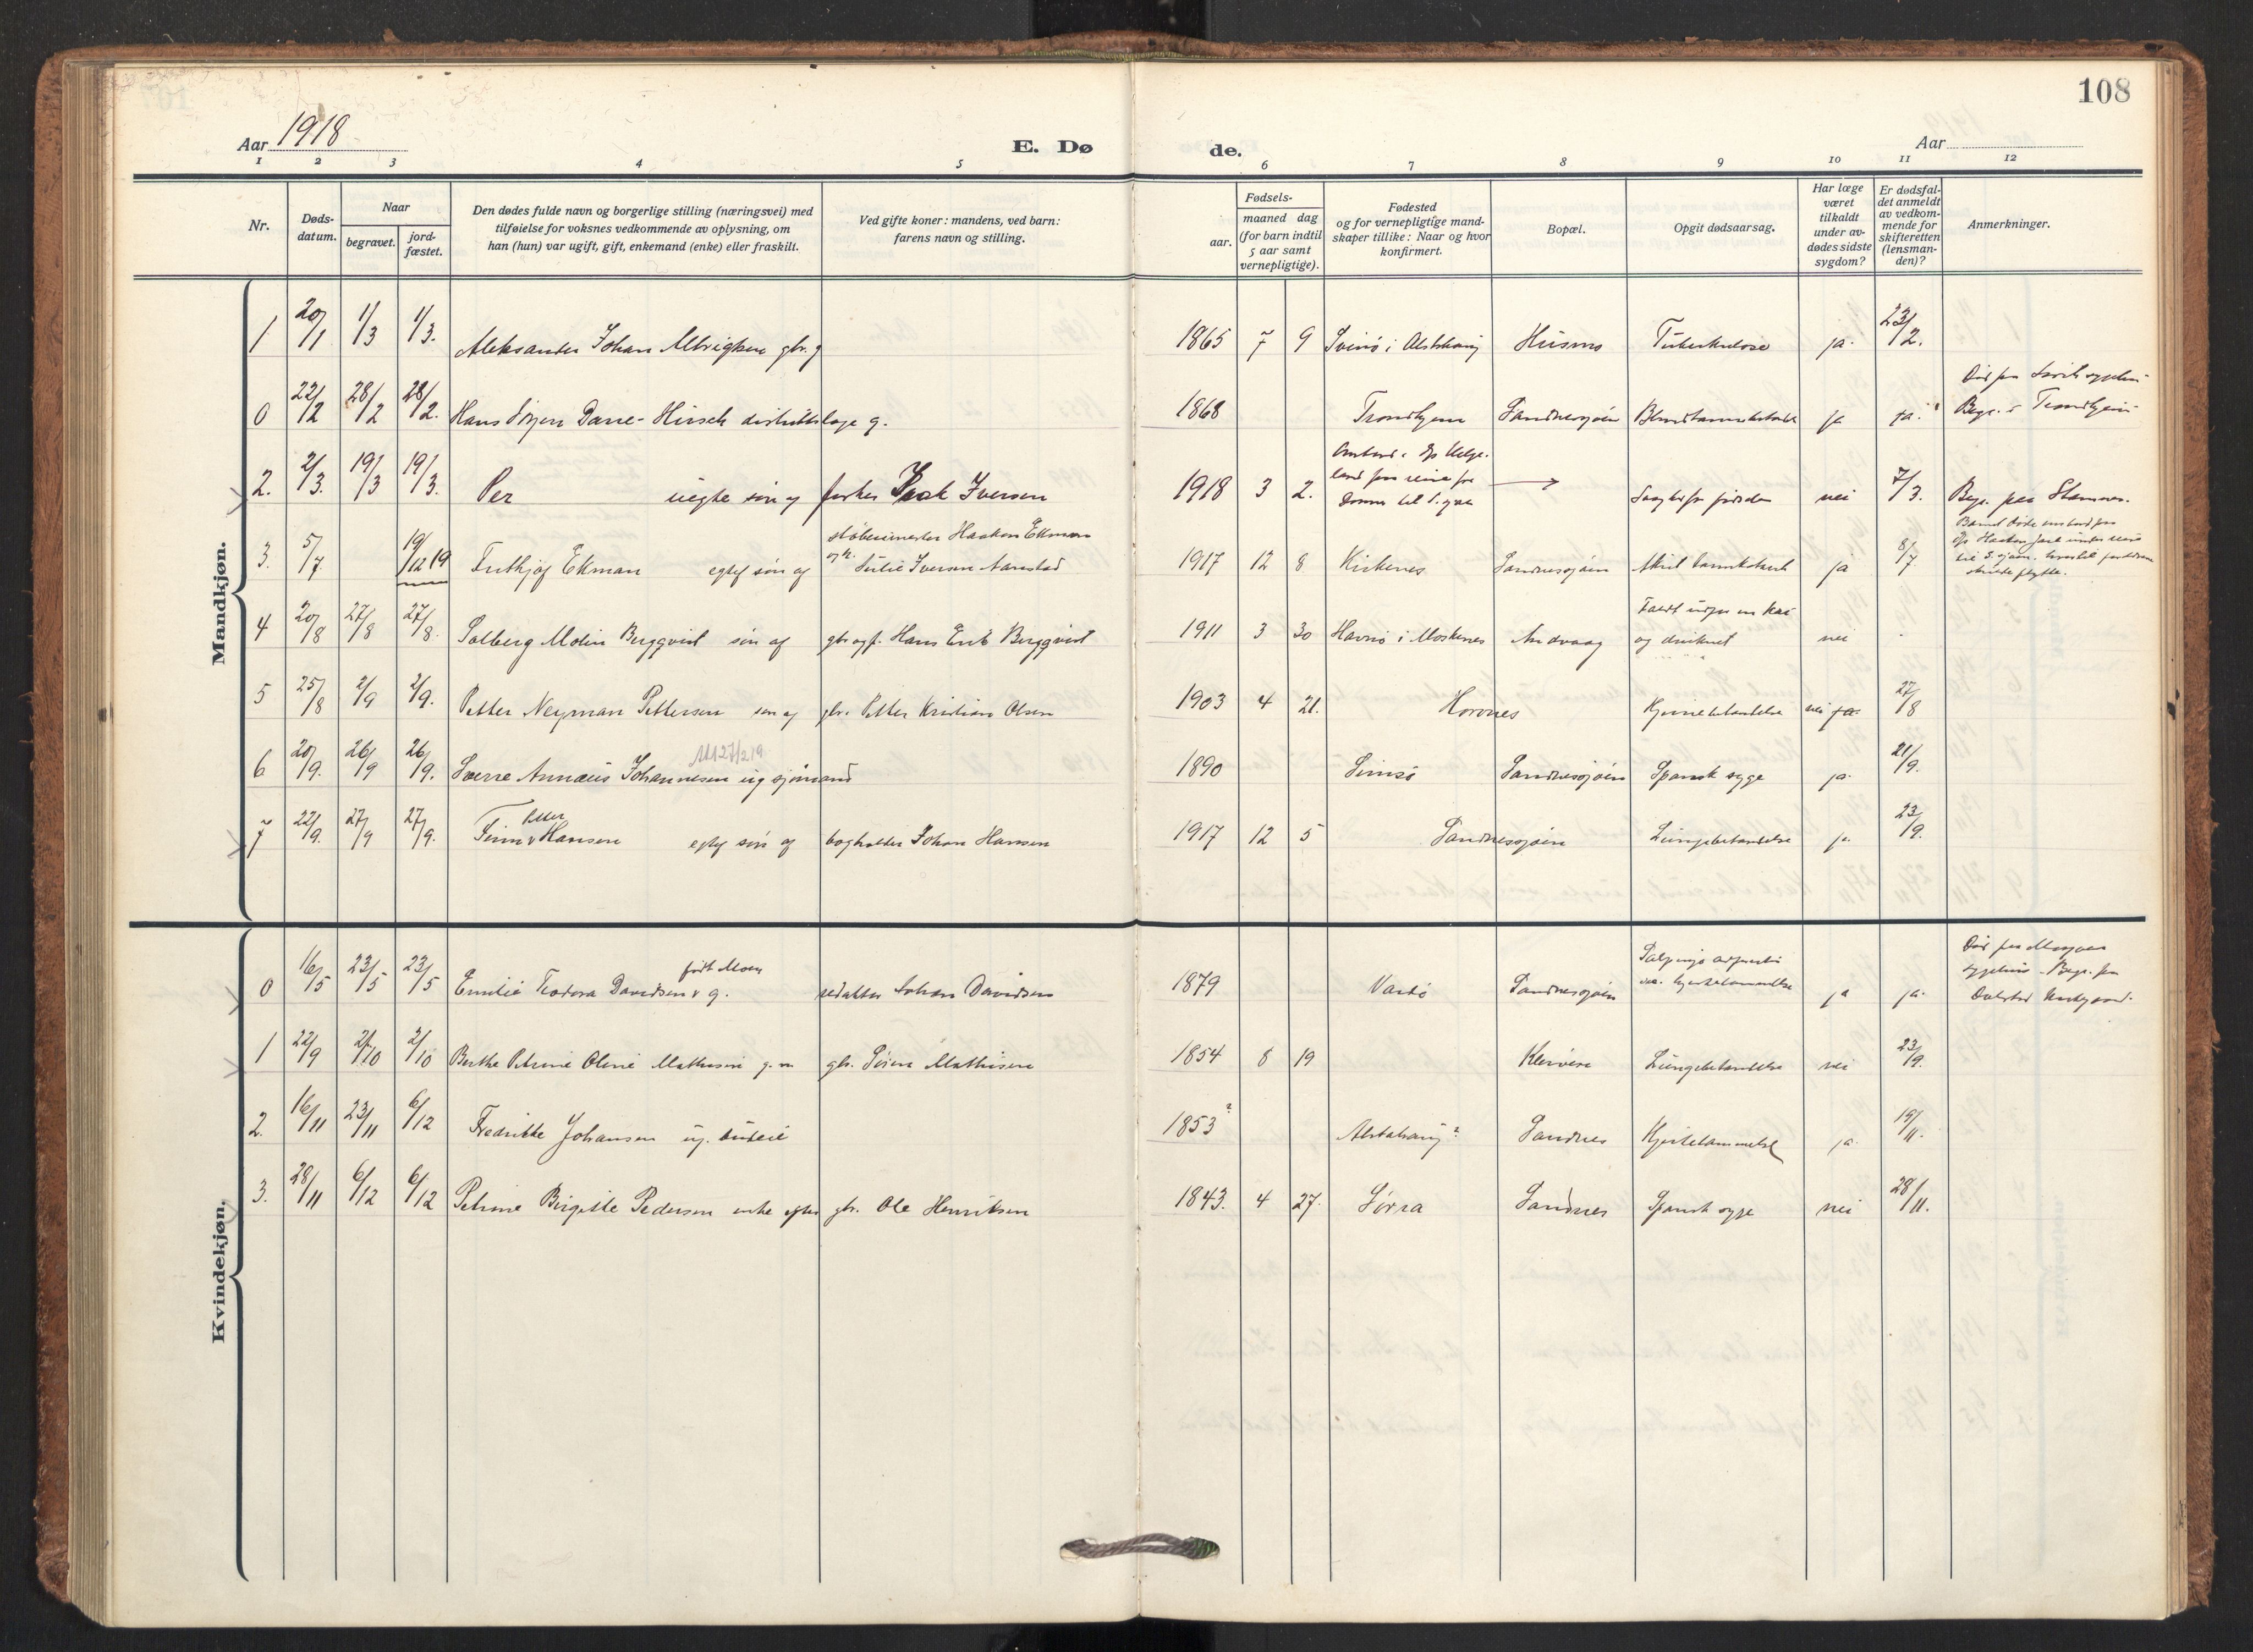 108
Aar 1918
E. Dø de.
Aar
1 2 3 4 5 6 7 8 9 10 11 12
Nr.
Døds-
datum.
Naar
begravet.
jord-
fæstet.
Den dødes fulde navn og borgerlige stilling (næringsvei) med
tilføielse for voksnes vedkommende av oplysning, om
han (hun) var ugift, gift, enkemand (enke) eller fraskilt.
Ved gifte koner: mandens, ved barn:
farens navn og stilling.
Fødsels-
aar.
maaned dag
(for barn indtil
5 aar samt
vernepligtige).
Fødested
og for vernepligtige mand-
skaper tillike: Naar og hvor
konfirmert.
Bopæl.
Opgit dødsaarsag.
Har læge
været
tilkaldt
under av-
dødes sidste
sygdom?
Er dødsfal-
det anmeldt
av vedkom-
mende for
skifteretten
(lensman-
den)?
Anmerkninger.
Mandkjøn.
1 20/1 1/3 1/3. Aleksander Johan Albrigtsen gbr. g 1865 7 9 Svinø i Alstahaug Husmo Tuberkulose ja. 23/2.
0 22/2 28/2 28/2. Hans Jörgen Darre-Hirsch distriktslæge g. 1868 Trondhjem Sandnessjøen ja ja.
Begr. i Trondhjem
2. 2/3. 19/3 19/3. Per uegte søn af fisker Iversen 1918 3 2. nei 7/3. Begr. paa Stamnes.
3. 5/7. 19/12 19 Fritjof Ekman egtef søn af støberimester Haakon Ekman
Julie Iversen Aanstad 1917 12 8 Kirkenes Sandnessjøen ja 8/7
4 20/8 27/8 27/8. Solberg Molin Bergqvist søn af gbr. og f. Hans Erik Bergqvist 1911 3 30 Havnø i Moskenes Andvaag Faldt utfor en kai
og druknet nei
5 25/8 2/9 2/9. Petter Neyman Pettersen søn af gbr. Petter Kristian Olsen 1903 4 21. Hornes Hjernebetændelse nei ja. 27/8
6 20/9. 26/9 26/9. Sverre Annæus Johannesen ug sjømand 1890 Sandnessjøen Spansk syge ja. 21/9.
7 22/9. 27/9 27/9. Finn Peter Hansen egtef søn af bogholder Johan Hansen 1917 12 5 Sandnessjøen Lungebetændelse ja. 23/9.
Kvindekjøn.
0 16/5 23/5 23/5 Emilie Teodora Davidsen født Moen g. redaktør Johan Davidsen 1879 Vardø Sandnessjøen ja ja.
1 22/9 2/10 2/10 Berthe Petrine Oline Mathisen g.m. gbr. Søren Mathisen 1854 8 19 Kleiven Lungebetændelse nei 23/9.
2. 16/11 23/11 6/12 Fredrikke Johansen ug. 1853? Alstahaug? Sandnes Hjertelammelse ja. 19/11.
3. 28/11 6/12 6/12 Petrine Birgitte Pedersen enke efter gbr. Ole Henriksen 1843. 4 27. Sørra Sandnes Spansk syge nei 28/11.